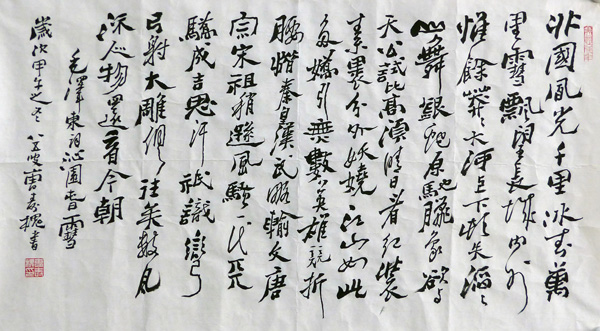 北國風光千里冰封萬
里雪飄望長城內外
惟餘莽莽大河上下頓失滔滔
山舞銀蛇原馳臘象欲与
天公試比高須晴日看紅裝
素裹分外妖嬈江山如此
多嬌引無數英雄競折
腰惜秦皇漢武略輸文唐
宗宋祖稍遜風騷一代天
驕成吉思汗祇識彎
弓射大雕俱往矣數風
流人物還看今朝
毛澤東詞沁園春雪
歲次甲午之冬八五叟書